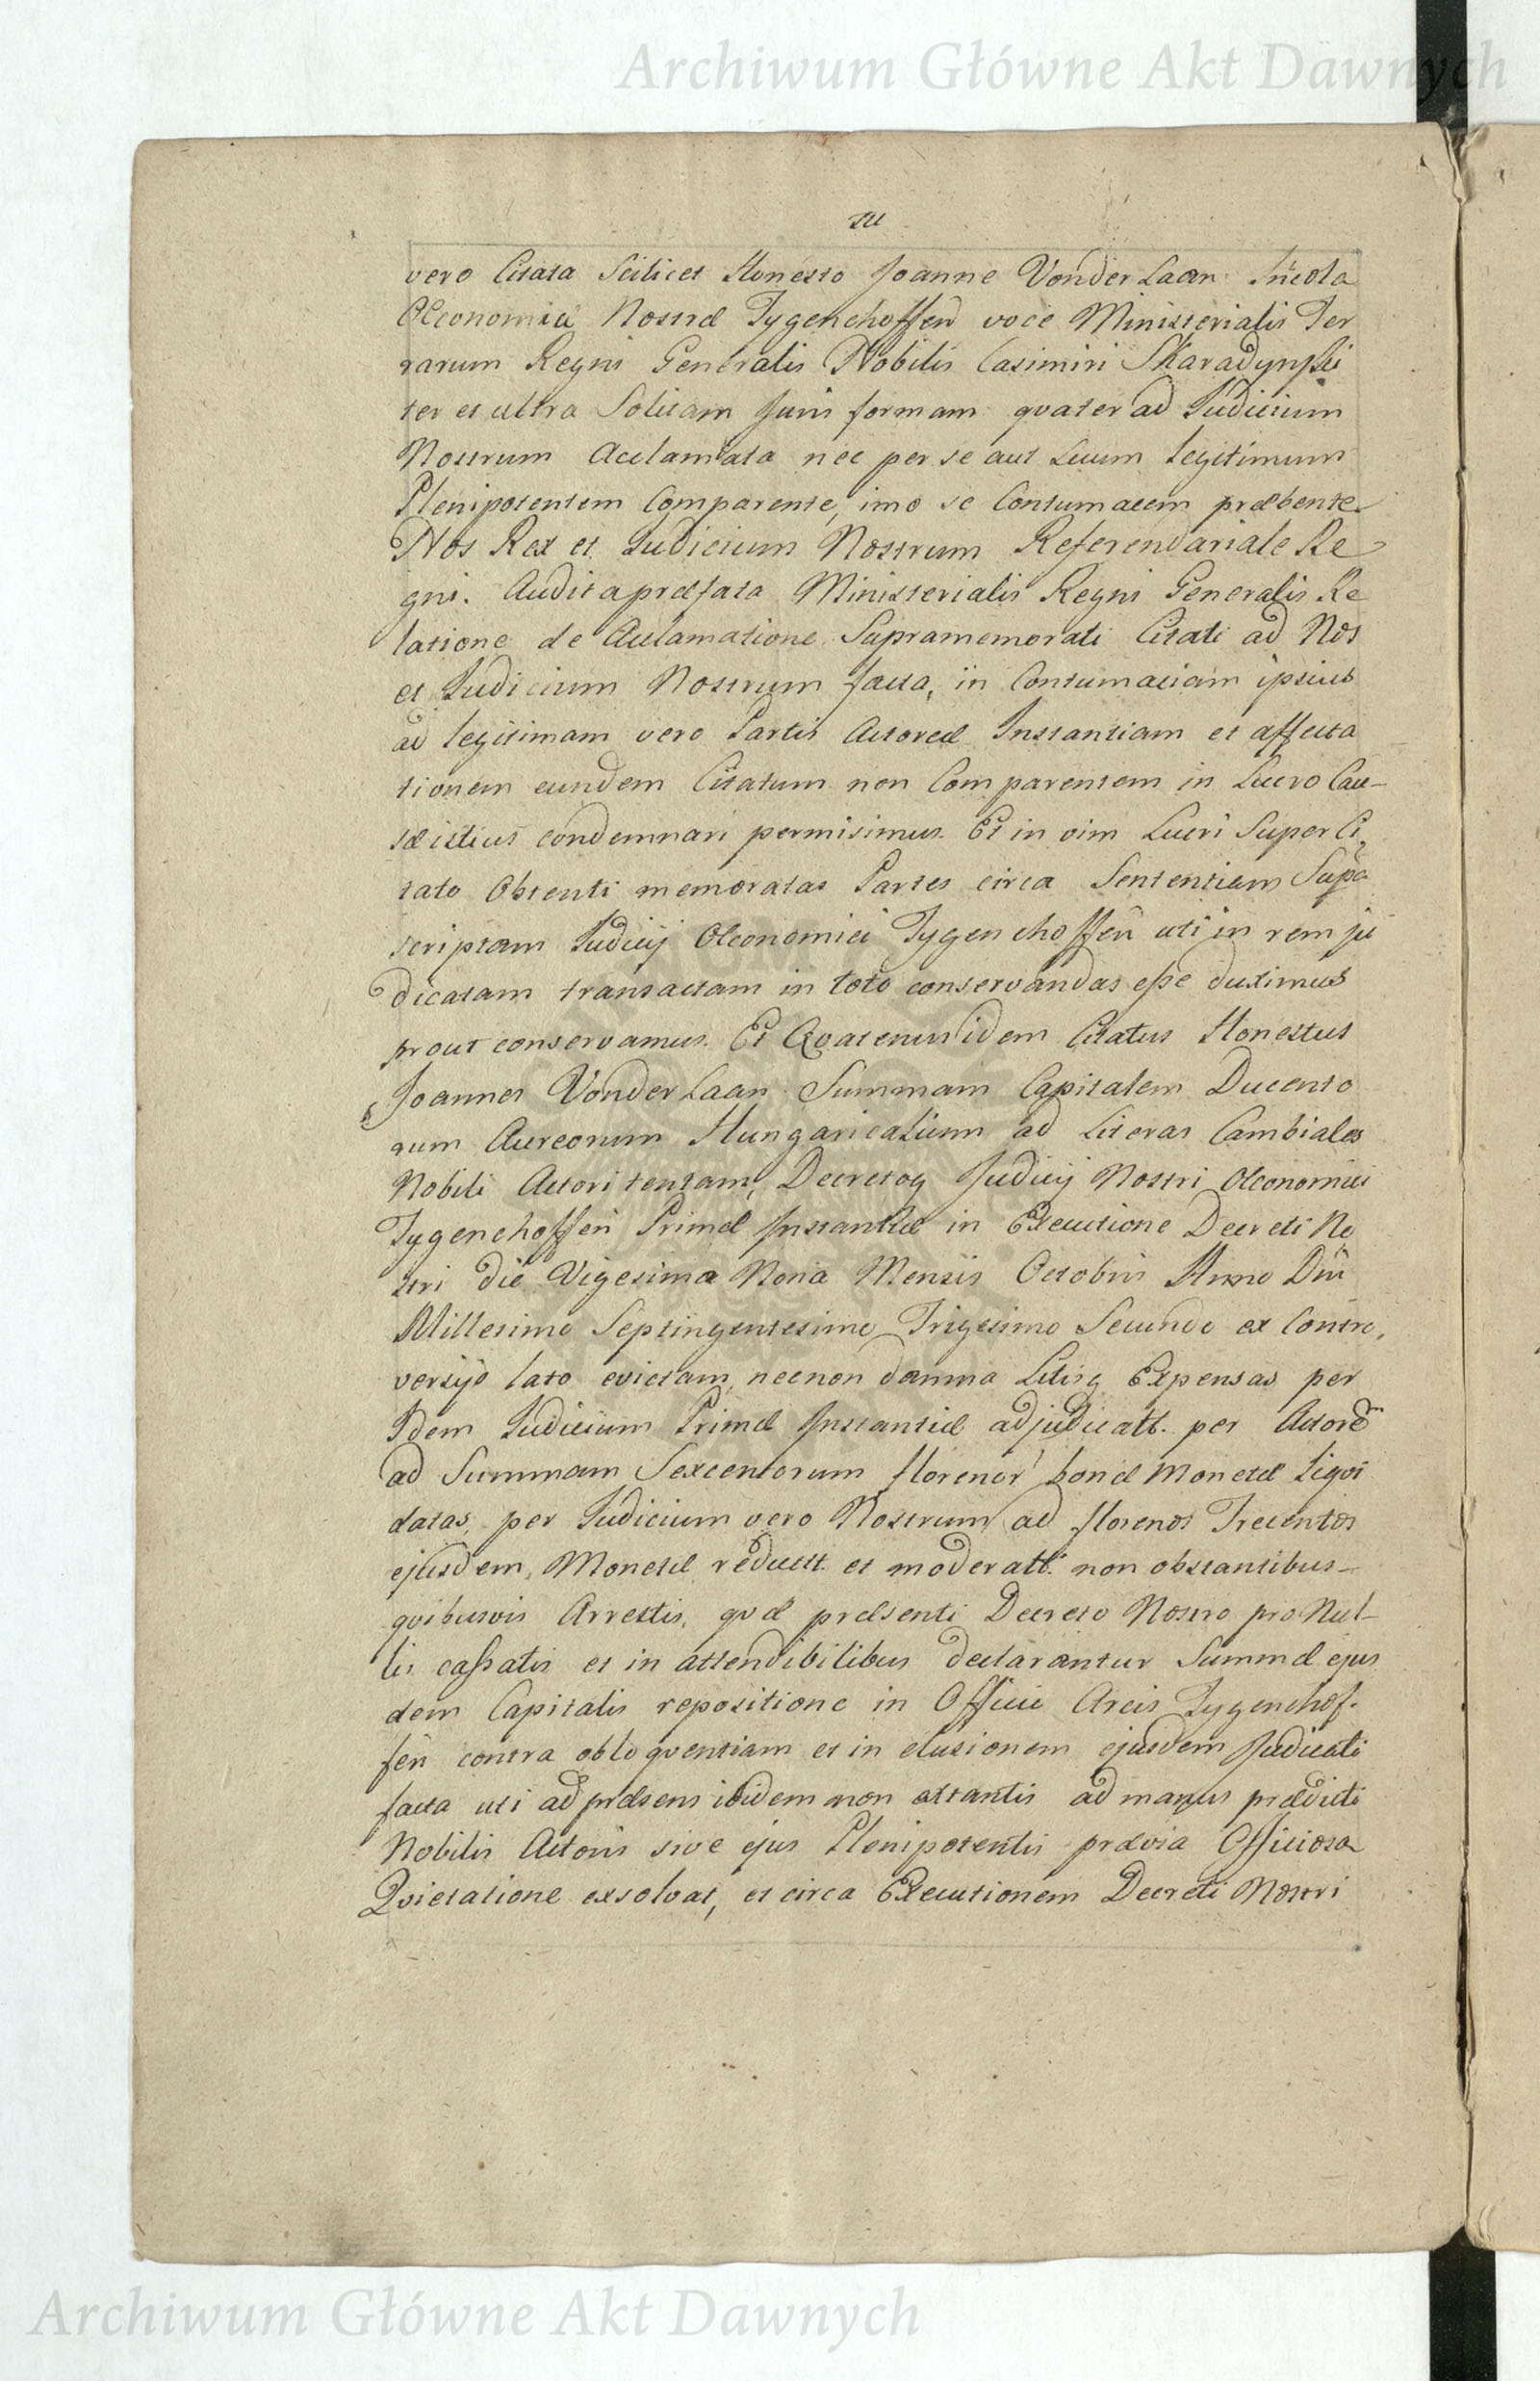 Archiwum Główne Akt Dawnych
vero Citata Scilicet Honesto Joanne Vonder Laan Incola
Œconomiæ Nostræ Tygenchoffen voce Ministerialis Ter
rarum Regni Generalis Nobilis Casimiri Skaradynski
ter et ultra Solitam Juris formam quater ad Judicium
Nostrum Acclamata nec per se aut Suum legitimum
Plenipotentem Comparente, imo se Contumacem præbente
Nos Rex et Judicium Nostrum Referendariale Re
gni. Audita præfata Ministerialis Regni Generalis Re
latione de Acclamatione Supramemorati Citati ad Nos
et Judicium Nostrum facta, in Contumaciam ipsius
ad legitimam vero Partis Actoreæ Instantiam et affecta
tionem eundem Citatum non Comparentem in Lucro Cau-
sæ istius condemnari permisimus. Et in vim Lucri Super Ci,
tato Obtenti memoratas Partes circa Sententiam Supra
scriptam Judicij Œconomici Tygenchoffen uti in rem ju
dicatam transactam in toto conservandas esse duximus
prout conservamus. Et Qvatenus idem Citatus Honestus
Joannes Vonder Laan Summam Capitalem Ducento
rum Aureorum Hungaricalium ad Literas Cambiales
Nobili Actori tentam, Decretoq Judicij Nostri Œconomici
Tygenchoffen Primæ Instantiæ in Executione Decreti No
stri die Vigesima Nona Mensis Octobris Anno Dni
Millesimo Septingentesimo Trigesimo Secundo ex Contro,
versijs lato evictam, necnon damna Litisq Expensas per
Idem Judicium Primæ Instantiæ adjudicatt. per Actorem
ad Summam Sexcentorum florenor bonæ Monetæ Liqvi
datas, per Judicium vero Nostrum ad florenos Trecentos
ejusdem Monetæ reductt. et moderatt. non obstantibus-
qvibusvis Arrestis, qvæ præsenti Decreto Nostro pro Nul-
lis cassatis et in attendibilibus declarantur Summæ ejus
dem Capitalis repositione in Officio Arcis Tygenchof-
fen contra obloqventiam et in elusionem ejusdem Judicati
facta uti ad præsens ibidem non extantis ad manus prædicti
Nobilis Actoris sive ejus Plenipotentis prævia Officiosa
Qvietatione exsolvat, et circa Executionem Decreti Nostri
Archiwum Główne Akt Dawnych